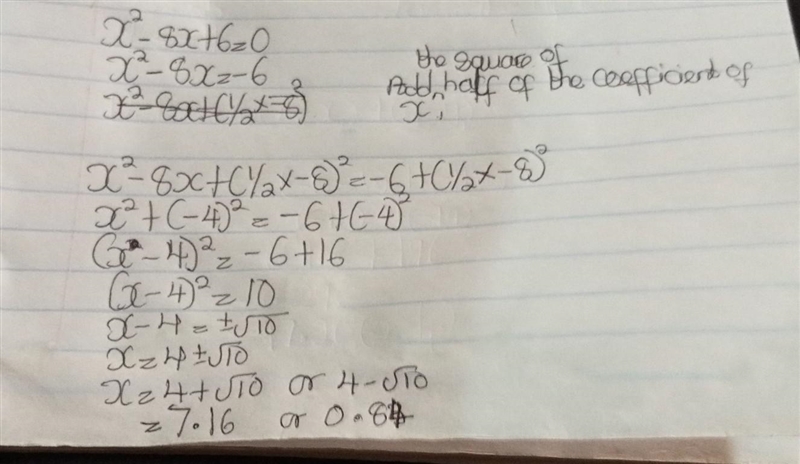 x² - 8x + 6 = 0
x² - 8x = -6
x² - 8x + (1/2 x - 8)²
the square of
Add, half of the coefficient of
x,
x² - 8x + (1/2 x - 8)² = -6 + (1/2 x - 8)²
x² + (-4)² = -6 + (-4)²
(x - 4)² = -6 + 16
(x - 4)² = 10
x - 4 = ±√10
x = 4 ± √10
x = 4 + √10 or 4 - √10
= 7.16 or 0.84